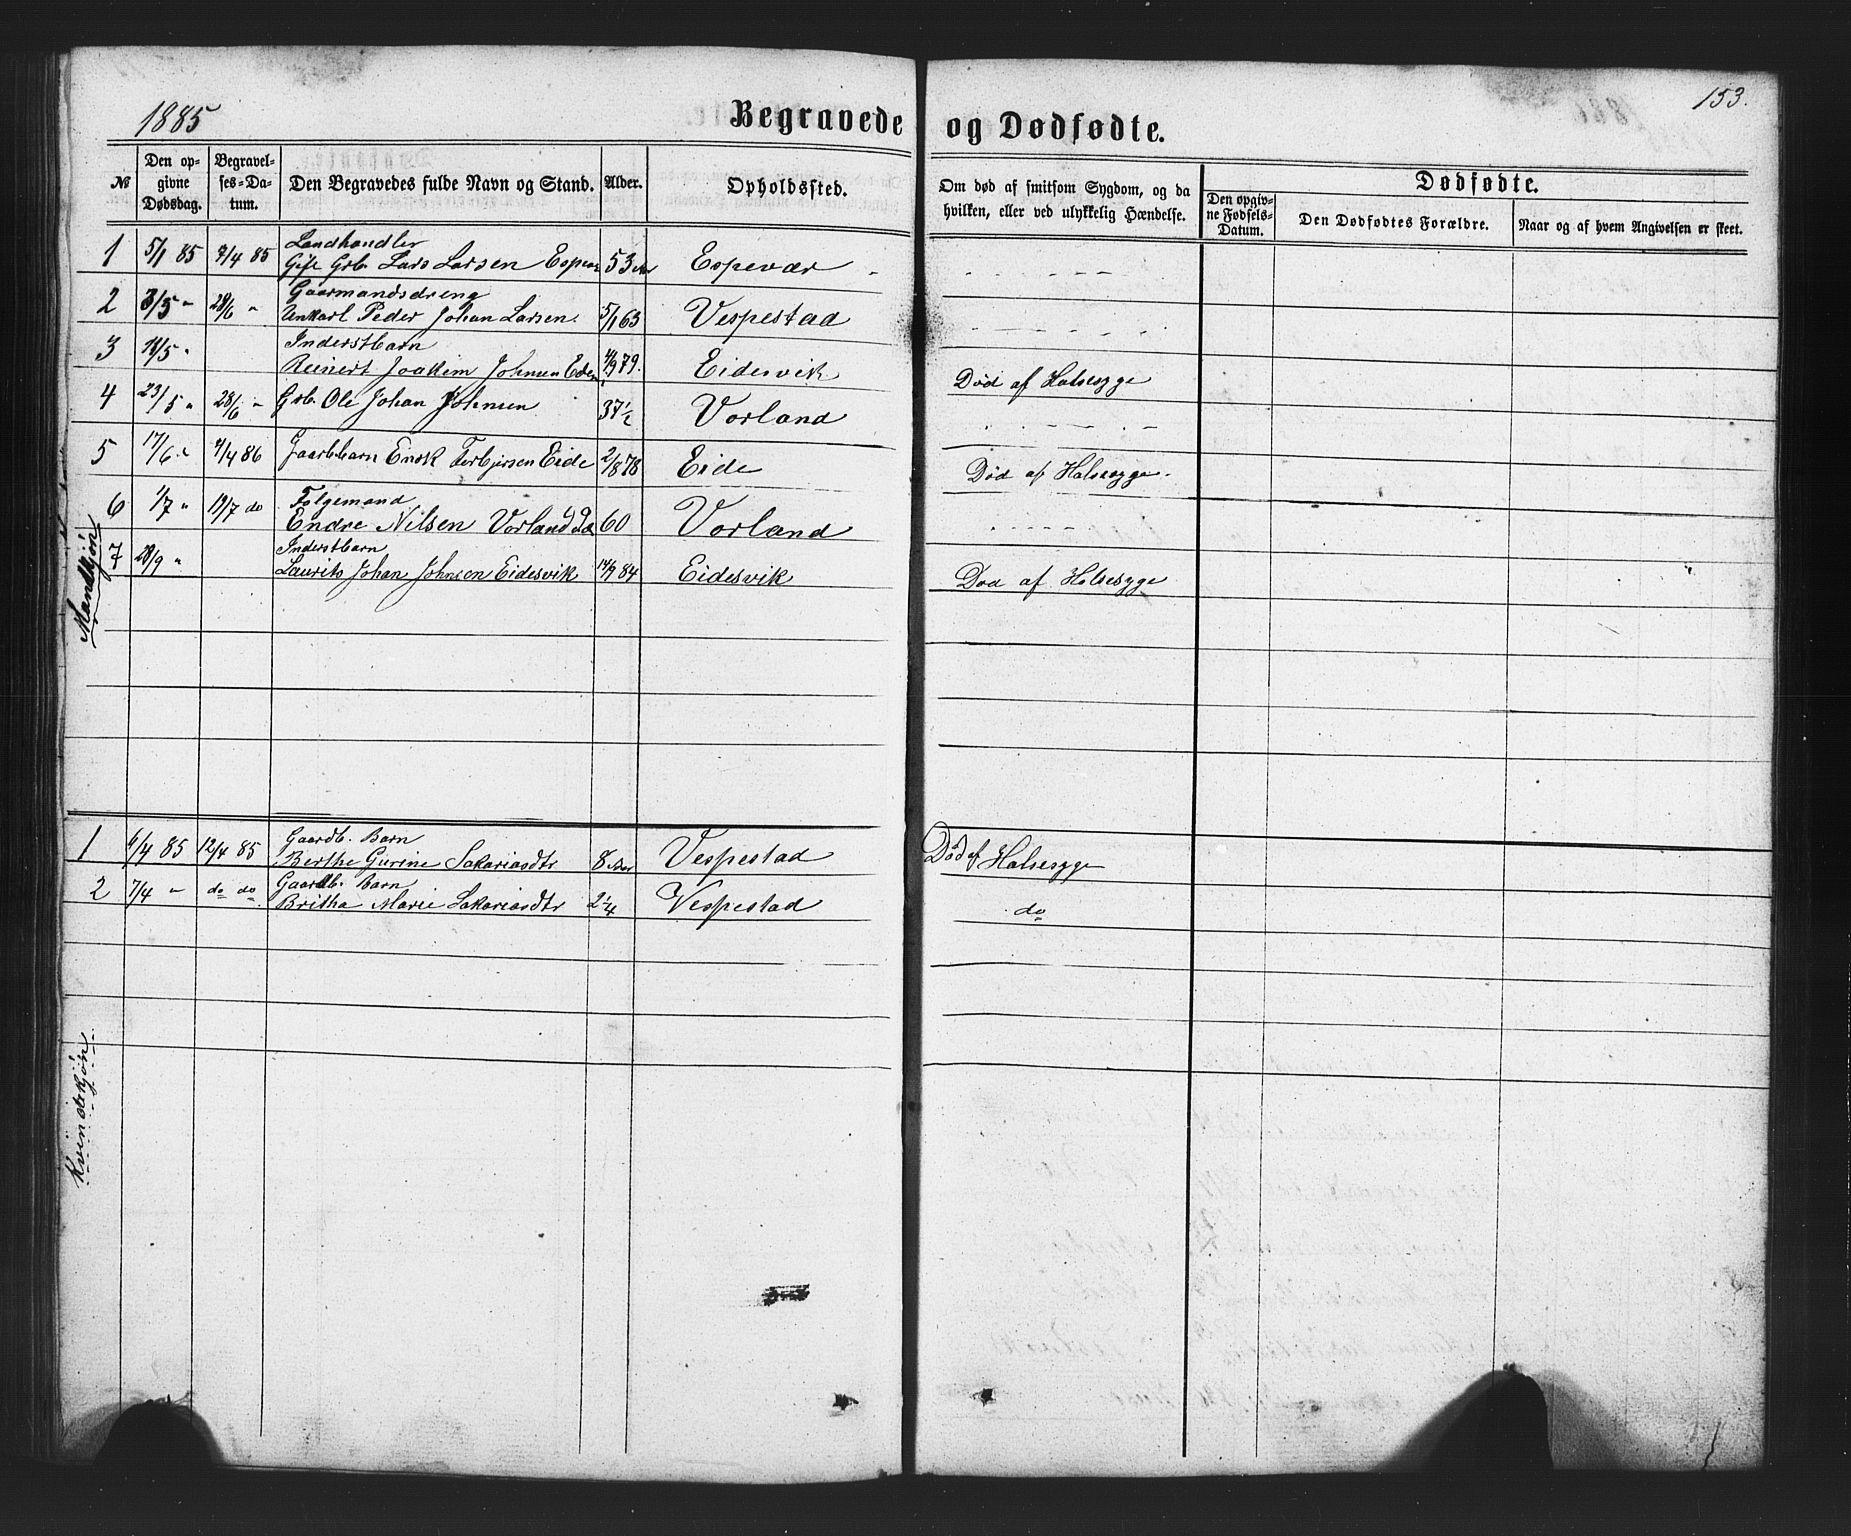 1885
Begravede og Dødfødte.
153.
№
Den opgivne Dødsdag.
Begravelses-Datum.
Den Begravedes fulde Navn og Stand.
Alder.
Opholdssted.
Om død af smitsom Sygdom, og da hvilken, eller ved ulykkelig Hændelse.
Dødfødte.
Den opgivne Fødsels-Datum.
Den Dødfødtes Forældre.
Naar og af hvem Angivelsen er skeet.
Mandkjøn
1 5/1 85 7/4 85 Landhandler
Gift Grb. Lars Larsen 53 Espevær
2 3/5 " 28/6 " Gaarmandsdreng
Unkarl Peder Johan Larsen. 5/1 63 Vespestad
3 18/5 " Inderstbarn
Reinert Joakim Johnsen 4/9 79. Eidesvik Død af Halsesyge
4 23/5 " 28/6 " Grb. Ole Johan Johnsen 37 1/2 Vorland
5 17/6 " 4/4 86 Gaardbarn Torbjørsen Eide 2/8 78 Eide Død af Halsesyge.
6 1/7 " 19/7 do Følgemand
Endre Nilsen Vorland 60 Vorland
7 28/9 " Inderstbarn
Laurits Johan Johnsen Eidesvik 14/9 84 Eidesvik Død af Halsesyge
Kvindekjøn
1 6/4 85 12/4 85 Gaardb. Barn
Berthe Gurine Sakariasdtr 8 Aar Vespestad Død af Halsesyge
2 7/4 " do do Gaardb. Barn
Britha Marie Sakariasdtr 2 1/4 Vespestad do